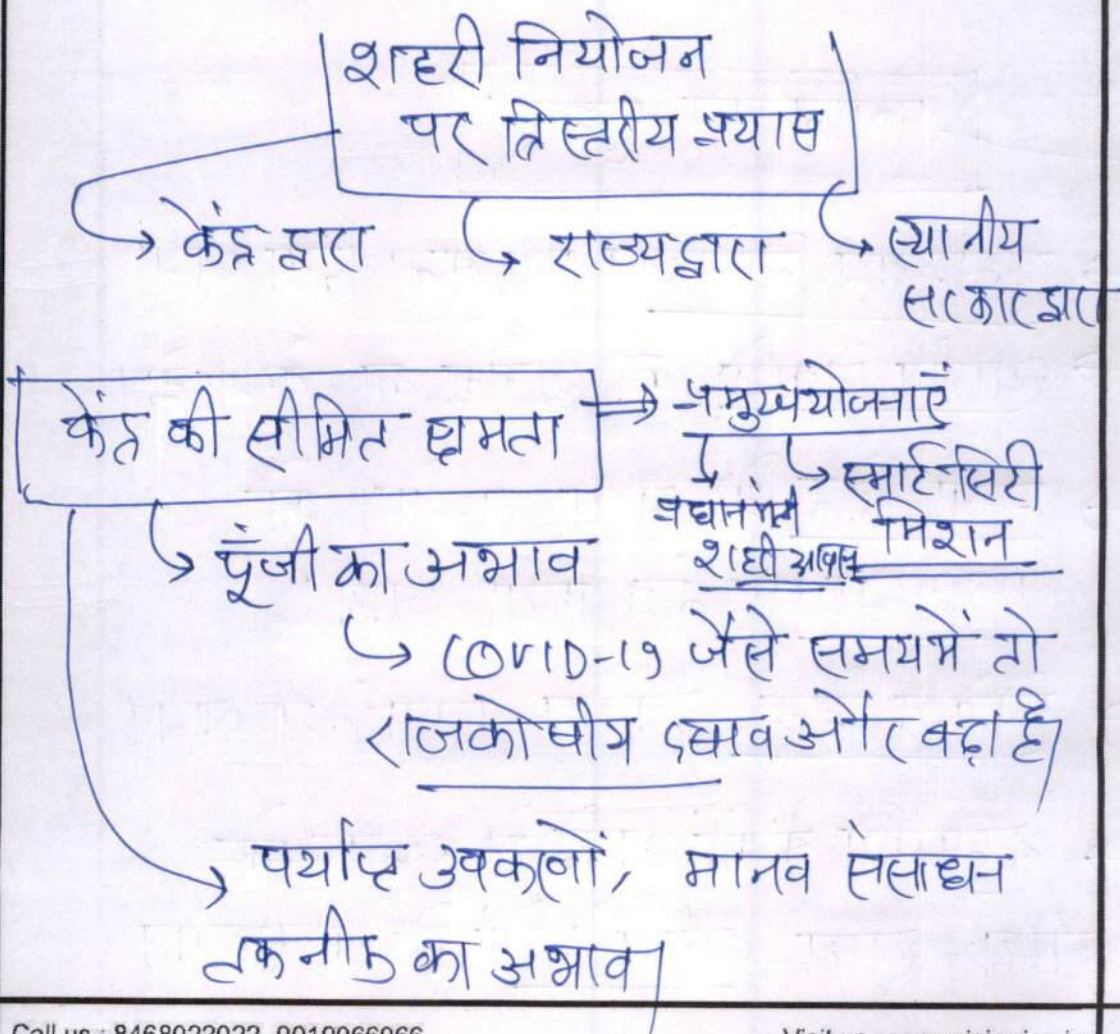 शहरी नियोजन
पर त्रिस्तरीय प्रयास
केंद्र द्वारा
राज्य द्वारा
स्थानीय
सरकार द्वारा
केंद्र की सीमित क्षमता
प्रमुख योजनाएँ
स्मार्ट सिटी
मिशन
प्रधानमंत्री
शहरी आवास
पूंजी का अभाव
COVID-19 जैसे समय में तो
राजकोषीय दबाव और बढ़ा है।
पर्याप्त उपकरणों, मानव संसाधन
तकनीक का अभाव।
Call us : 8468022022, 9019066066